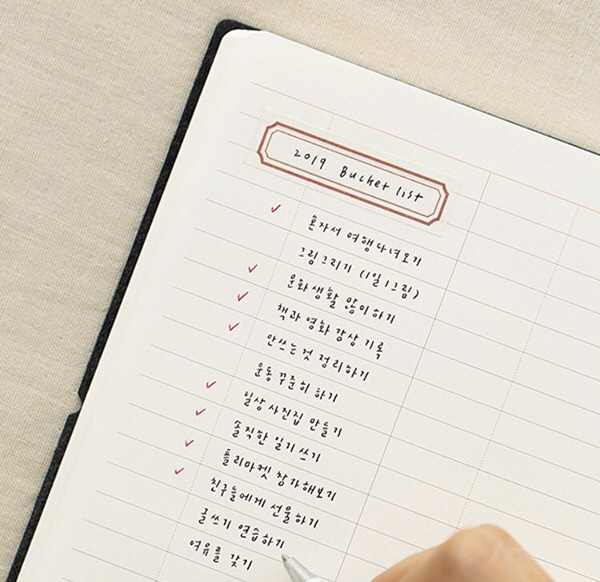 2019 Bucket list
혼자서 여행 다녀오기
그림 그리기 (1일 1그림)
문화생활 많이 하기
책과 영화 감상 기록
안쓰는 것 정리하기
운동 꾸준히 하기
일상 사진집 만들기
솔직한 일기 쓰기
플리마켓 참가해보기
친구들에게 선물하기
글쓰기 연습하기
여유를 갖기